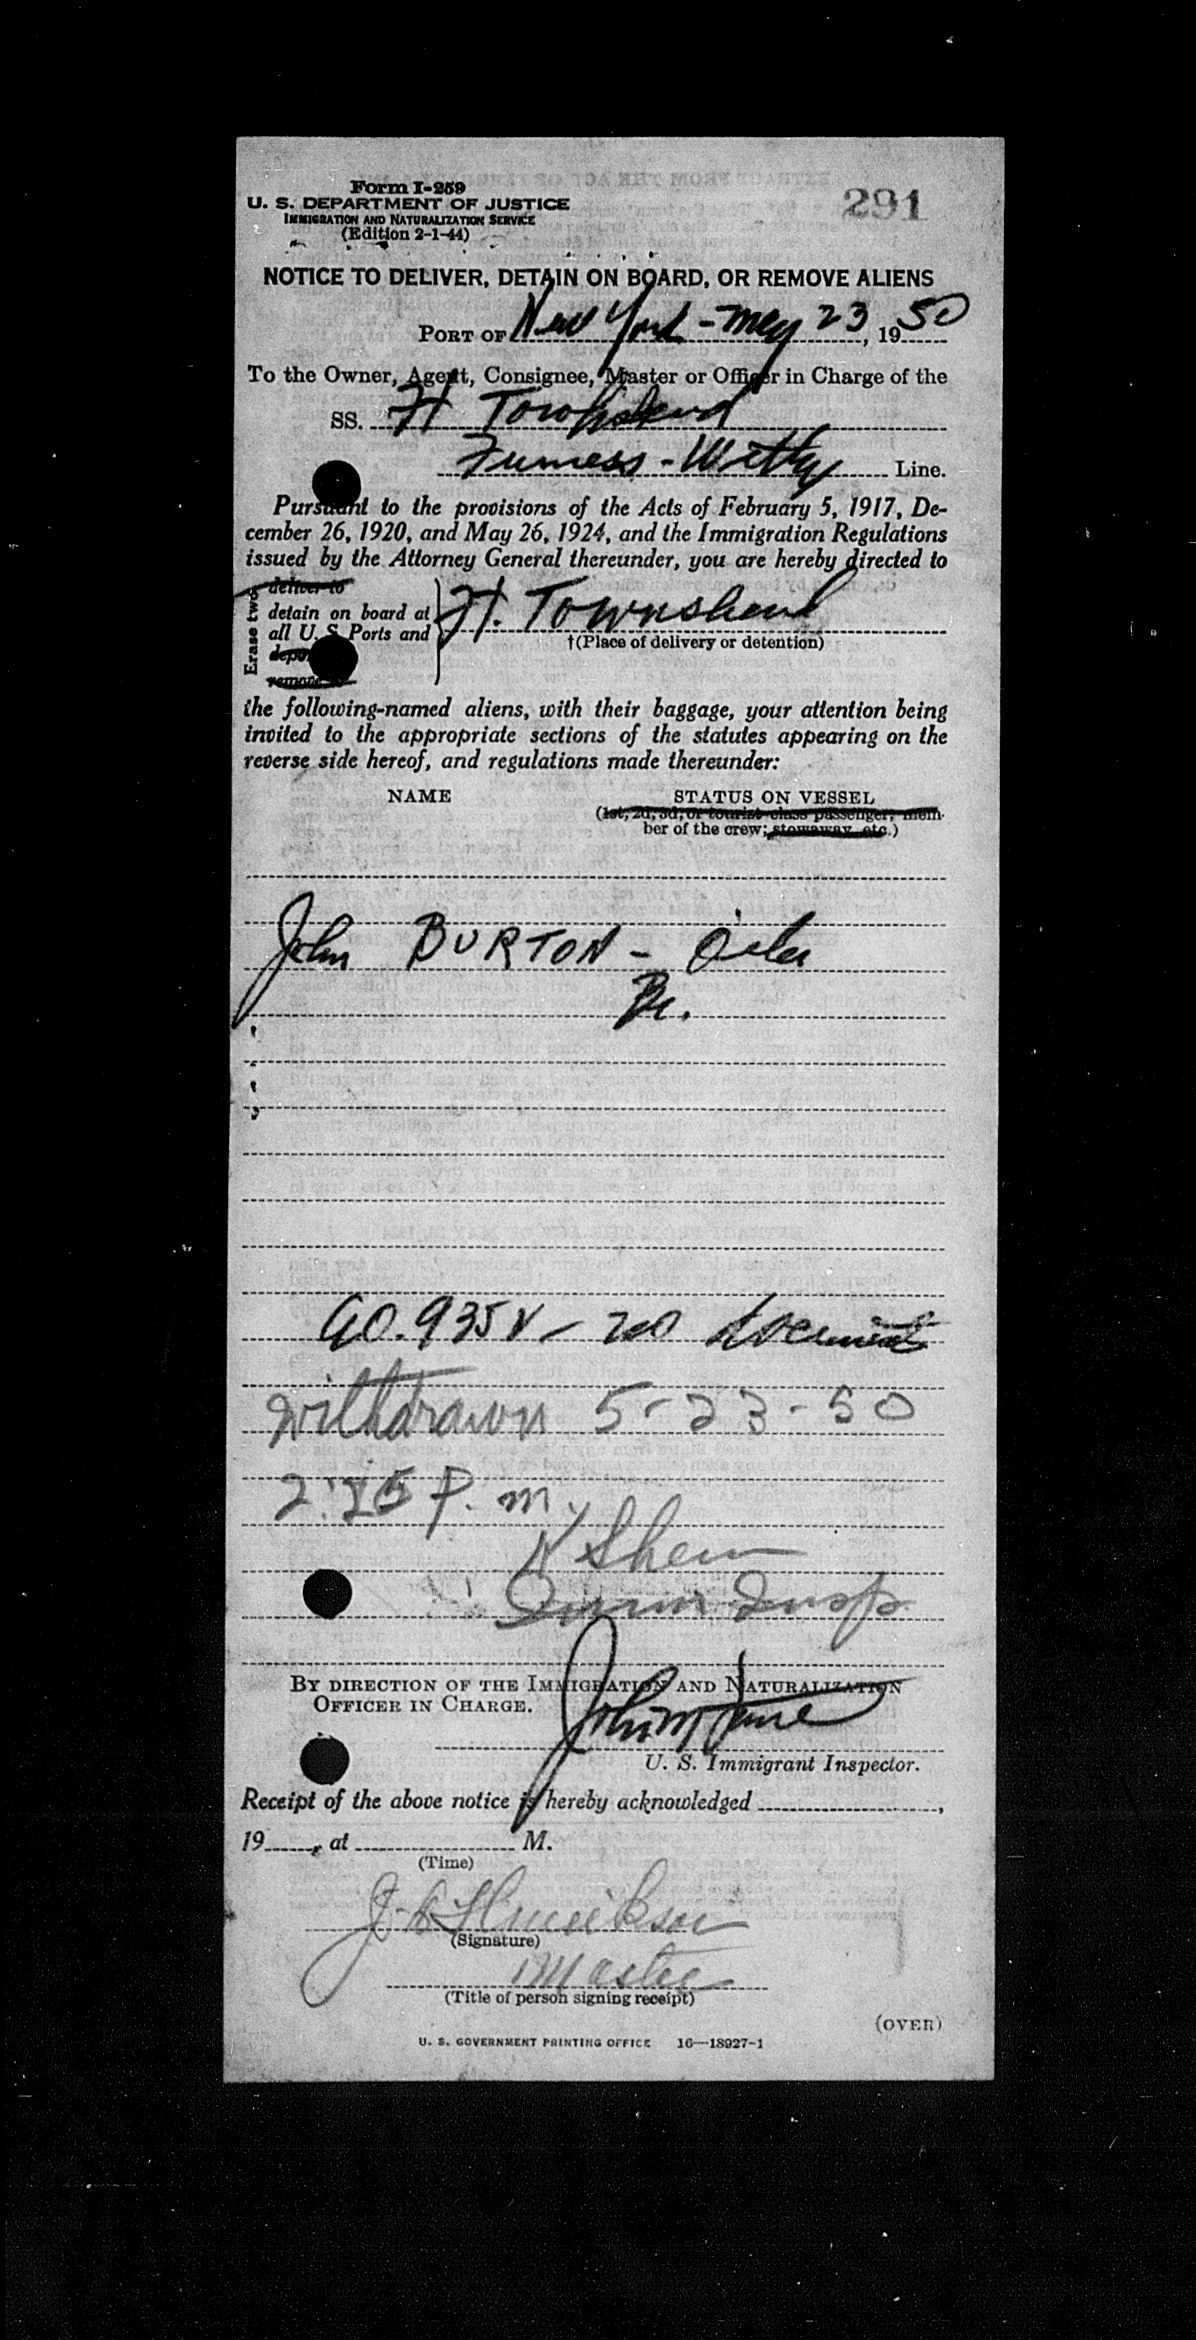 Form I-259
U. S. DEPARTMENT OF JUSTICE
IMMIGRATION AND NATURALIZATION SERVICE
(Edition 2-1-44)
291
NOTICE TO DELIVER, DETAIN ON BOARD, OR REMOVE ALIENS
PORT OF New York - May 23, 1950
To the Owner, Agent, Consignee, Master or Officer in Charge of the
SS. Ft Townshend
Furness - Withy Line.
Pursuant to the provisions of the Acts of February 5, 1917, De-
cember 26, 1920, and May 26, 1924, and the Immigration Regulations
issued by the Attorney General thereunder, you are hereby directed to
Erase two
deliver to
detain on board at
all U. S. Ports and
remove to
Ft. Townshend
†(Place of delivery or detention)
the following-named aliens, with their baggage, your attention being
invited to the appropriate sections of the statutes appearing on the
reverse side hereof, and regulations made thereunder:
NAME STATUS ON VESSEL
(1st, 2d, 3d, or tourist class passenger, mem-
ber of the crew; stowaway, etc.)
John BURTON - Oiler
Br.
- no document
Withdrawn 5-23-50
P. m.
Shea
Insp
BY DIRECTION OF THE IMMIGRATION AND NATURALIZATION
OFFICER IN CHARGE.
John
U. S. Immigrant Inspector.
Receipt of the above notice is hereby acknowledged ,
19 , at M.
(Time)
(Signature)
Master
(Title of person signing receipt)
(OVER)
U. S. GOVERNMENT PRINTING OFFICE 16—18927-1